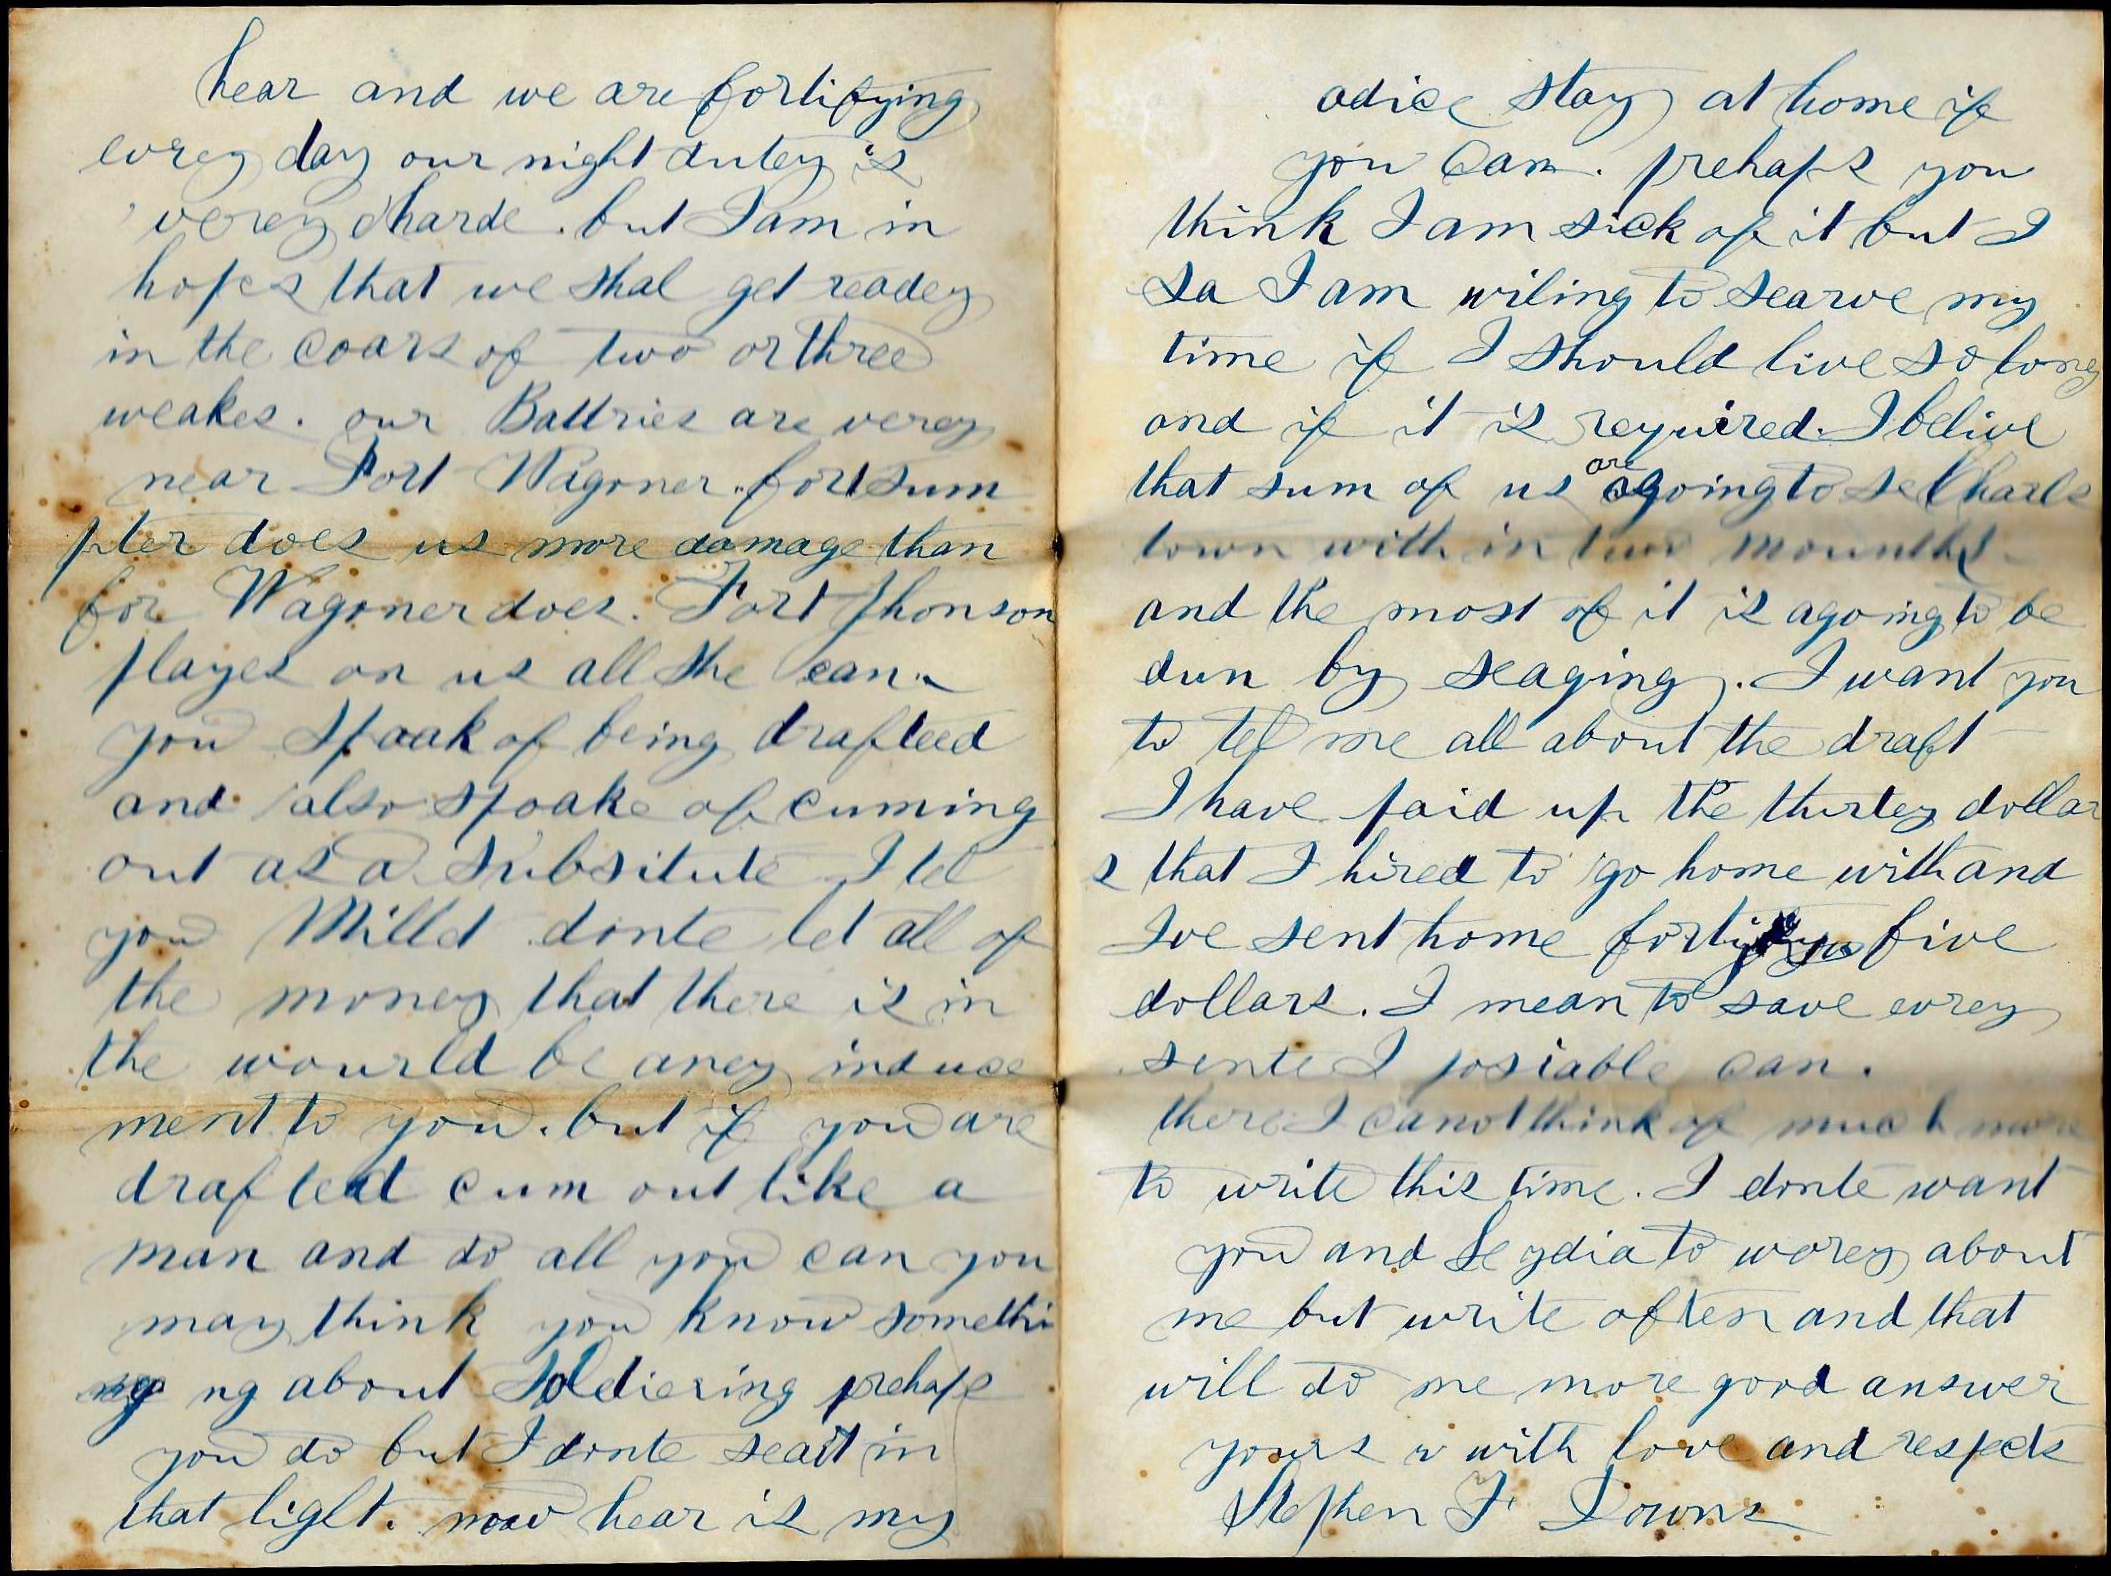 hear and we are fortifying
evrey day our night dutey is
verey harde. but I am in
hopes that we shal get readey
in the coars of two or three
weakes. our Battries are verey
near Fort Wagoner. fort sum
pter does us more damage than
for Wagoner does. Fort Jhonson
playes on us all she can.
you spoak of being drafteed
and also spoake of cuming
out as a subsitute I tel
you Millet donte let all of
the money that there is in
the wourld be aney induce
ment to you. but if you are
drafted cum out like a
man and do all you can you
may think you know somethi
ng about Soldiering prehaps
you do but I donte sea it in
that light. now hear is my
adice stay at home if
you can. prehaps you
think I am sick of it but I
sa I am wiling to searve my
time if I should live so long
and if it is reyuired. I belive
that sum of us are agoing to se Charls
town with in two mounths
and the most of it is agoing to be
dun by seaging. I want you
to tel me all about the draft
I have paid up the thirtey dollar
s that I hired to go home with and
Ive sent home forty five
dollars. I mean to save evrey
sente I posiable can.
there I canot think of much more
to write this time. I donte want
you and Leydia to worey about
me but write often and that
will do me more good answer
yours with love and respects
Stephen F Downs